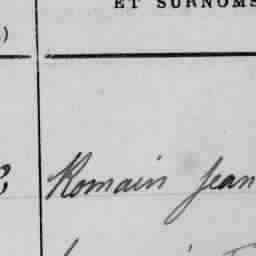 ET SURNOMS
)
Romain Jean